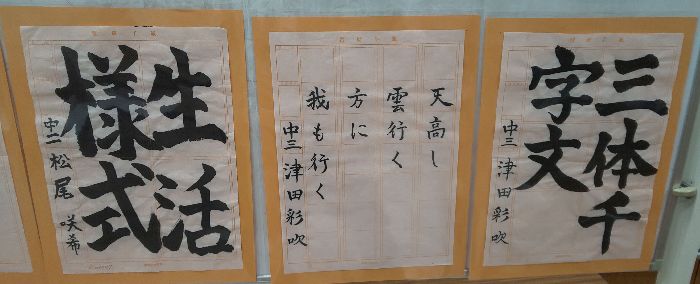 生活
様式
中二 松尾 咲希
天高し
雲行く
方に
我も行く
中三 津田彩吹
三体千
字文
中三 津田彩吹